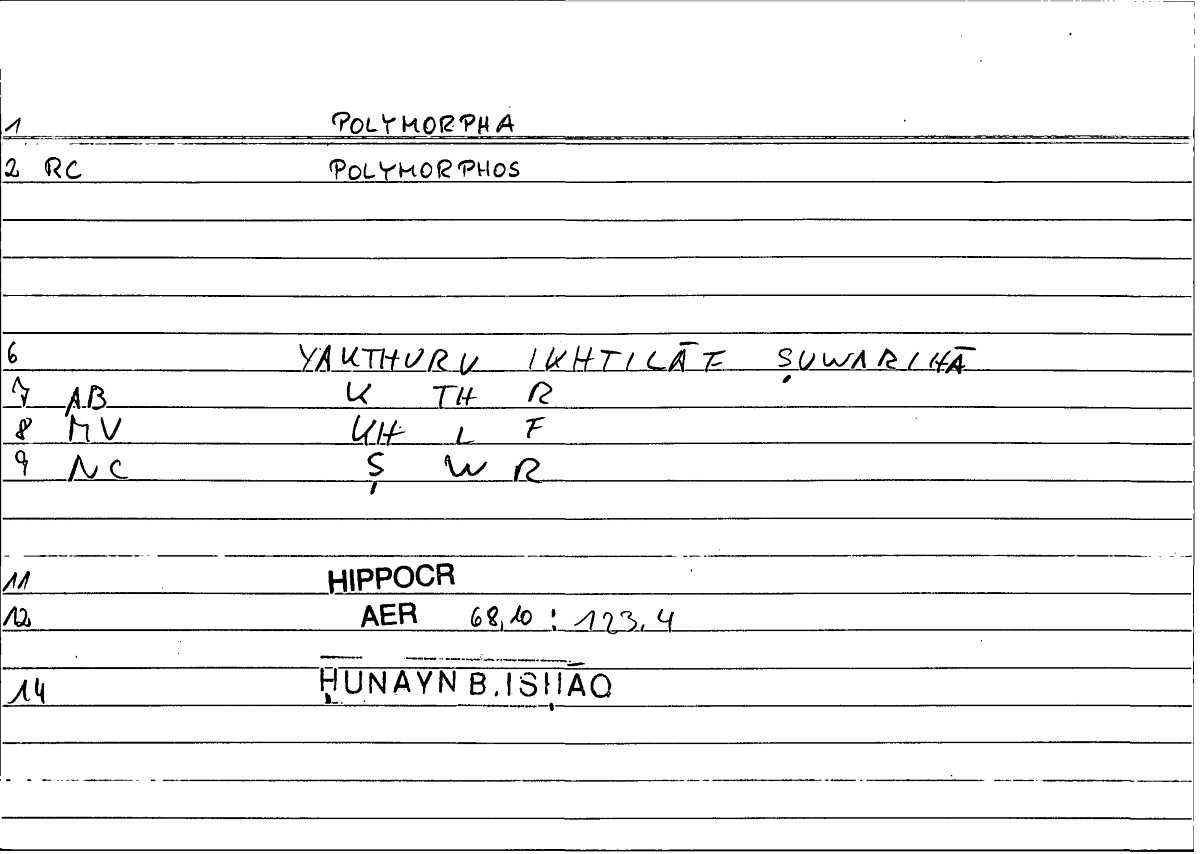 1 POLYMORPHA
2 RC POLYMORPHOS
6 YAKTHURU IKHTILĀF ṢUWARIHĀ
7 AB K TH R
8 MV KH L F
9 NC Ṣ W R
11 HIPPOCR
12 AER 68,10 : 123,4
14 ḤUNAYN B. ISḤĀQ